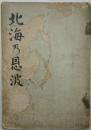 北海乃恩波